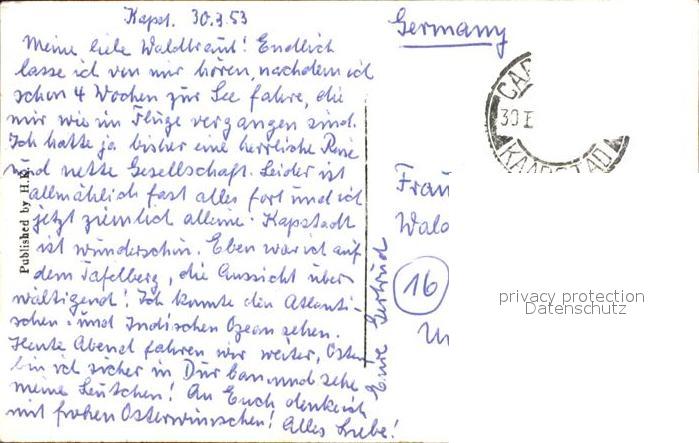 Kapst. 30.3.53
Germany
Meine liebe Waldtraut! Endlich
lasse ich von mir hören, nachdem ich
schon 4 Wochen zur See fahre, die
mir wie im Fluge vergangen sind.
Ich hatte ja bisher eine herrliche Reise
und nette Gesellschaft. Leider ist
allmählich fast alles fort und ich
jetzt ziemlich alleine. Kapstadt
ist wunderschön. Eben war ich auf
dem Tafelberg, die Aussicht über
wältigend! Ich konnte den Atlanti-
schen und Indischen Ozean sehen.
Heute Abend fahren wir weiter, Ostern
bin ich sicher in Durban und sehe
meine Leutchen! An Euch denke ich
mit frohen Osterwünschen! Alles Liebe!
Eure Gertrud
Published by H.
CAP
30 I
KAAPSTAD
Frau
Wald
16
privacy protection
Datenschutz